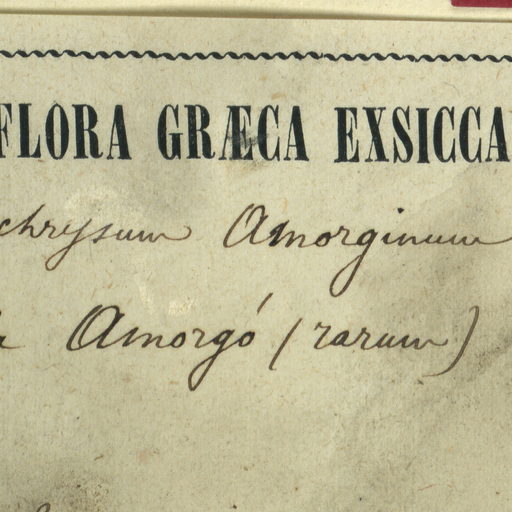 FLORA GRÆCA EXSICCA
chrysum Amorginum
Amorgó (rarum)